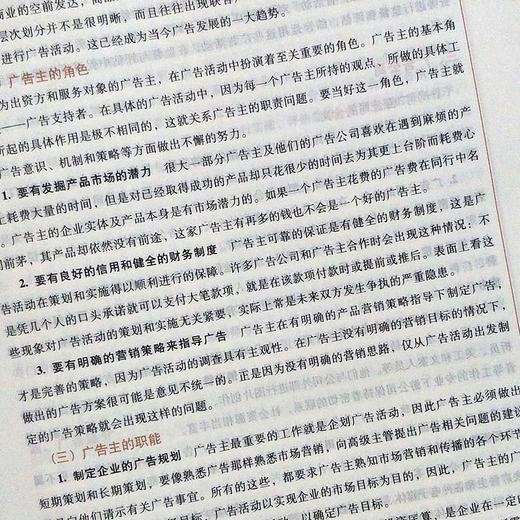 商业的空前发达，同
层次划分并不是很明晰，而且往往出现联
进行广告活动。这已经成为当今广告发展的一大趋势。
）广告主的角色
为出资方和服务对象的广告主，在广告活动中扮演着至关重要的角色。广告主的基本角
——广告支持者。在具体的广告活动中，因为每一个广告主所持的观点、所做的具体工
所起的具体作用是极不相同的，这就关系广告主的职责问题。要当好这一角色，广告主就
广告意识、机制和策略等方面做出不懈的努力。
1. 要有发掘产品市场的潜力 很大一部分广告主及他们的广告公司喜欢在遇到麻烦的产
上耗费大量的时间，但是对已经取得成功的产品却只花很少的时间去为其更上台阶而耗费心
。广告主的企业实体及产品本身是有市场潜力的。如果一个广告主花费的广告费在同行中名
前茅，其产品却依然没有前途，这家广告主有再多的钱也不会是一个好的广告主。
2. 要有良好的信用和健全的财务制度 广告主可靠的保证是有健全的财务制度，这是广
告活动在策划和实施得以顺利进行的保障。许多广告公司和广告主合作时会出现这种情况：不
是凭几个人的口头承诺就可以支付大笔款项，就是在该款项付款时或提前或推后。表面上看这
些现象对广告活动的策划和实施无关紧要，实际上常是未来双方发生争执的严重隐患。
3. 要有明确的营销策略来指导广告 广告主在有明确的产品营销策略指导下制定广告，
才是完善的策略，因为广告活动的调查具有主观性。在广告主没有明确的营销目标的情况下，
做出的广告方案很可能是意见不统一的。正是因为没有明确的营销思路，仅从广告活动出发制
定的广告策略就会出现这样的问题。
（三）广告主的职能
1. 制定企业的广告规划 广告主最重要的工作就是企划广告活动，因此广告主必须做出
短期策划和长期策划，要像熟悉广告那样熟悉市场营销，向高级主管提出广告相关问题的建议
是向他们请示有关广告事宜。所有的这些，都要求广告主熟知市场营销和传播的各个环节
广告活动以实现企业的市场目标为目的，因此，广告主的广
以确定广告目标。
是企业在一定